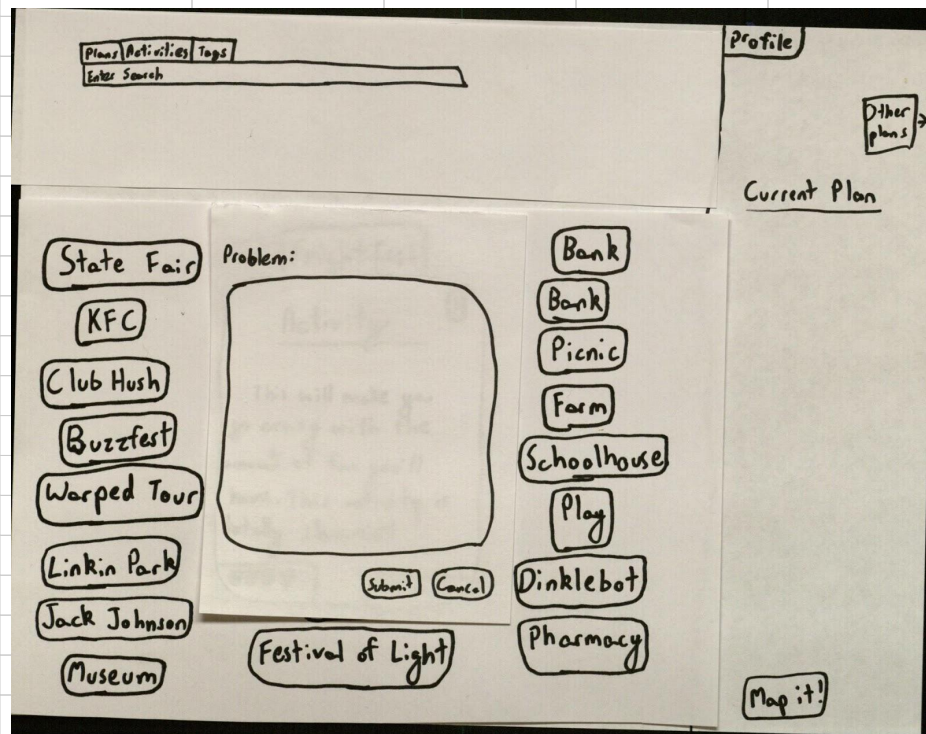 Plans Activities Tags
Enter Search
Profile
Other
plans
Current Plan
State Fair
KFC
Club Hush
Buzzfest
Warped Tour
Linkin Park
Jack Johnson
Museum
Problem:
Activity
This will make you
go crazy with the
amount of fun you'll
have. This activity is
totally
Submit Cancel
Festival of Light
Bank
Bank
Picnic
Farm
Schoolhouse
Play
Dinklebot
Pharmacy
Map it!